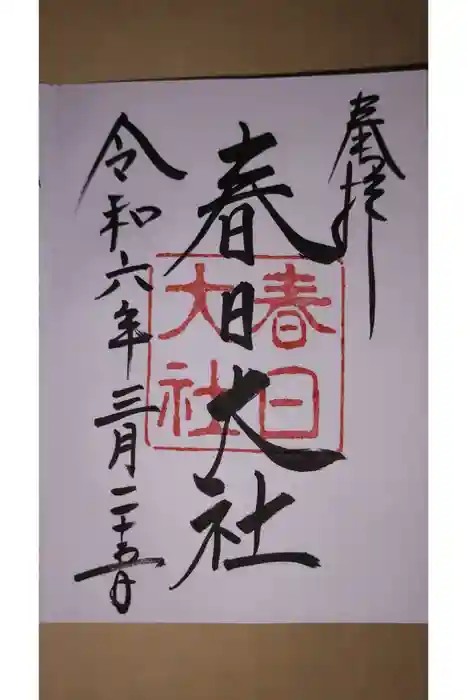 奉拝
春日大社
春日大社
令和六年三月二十五日